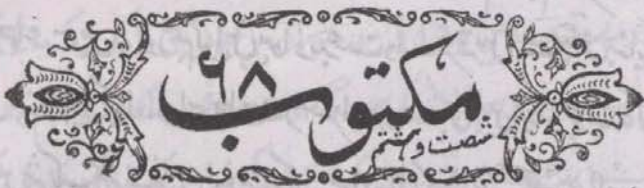 مکتوب ۶۸
شصت و هشتم